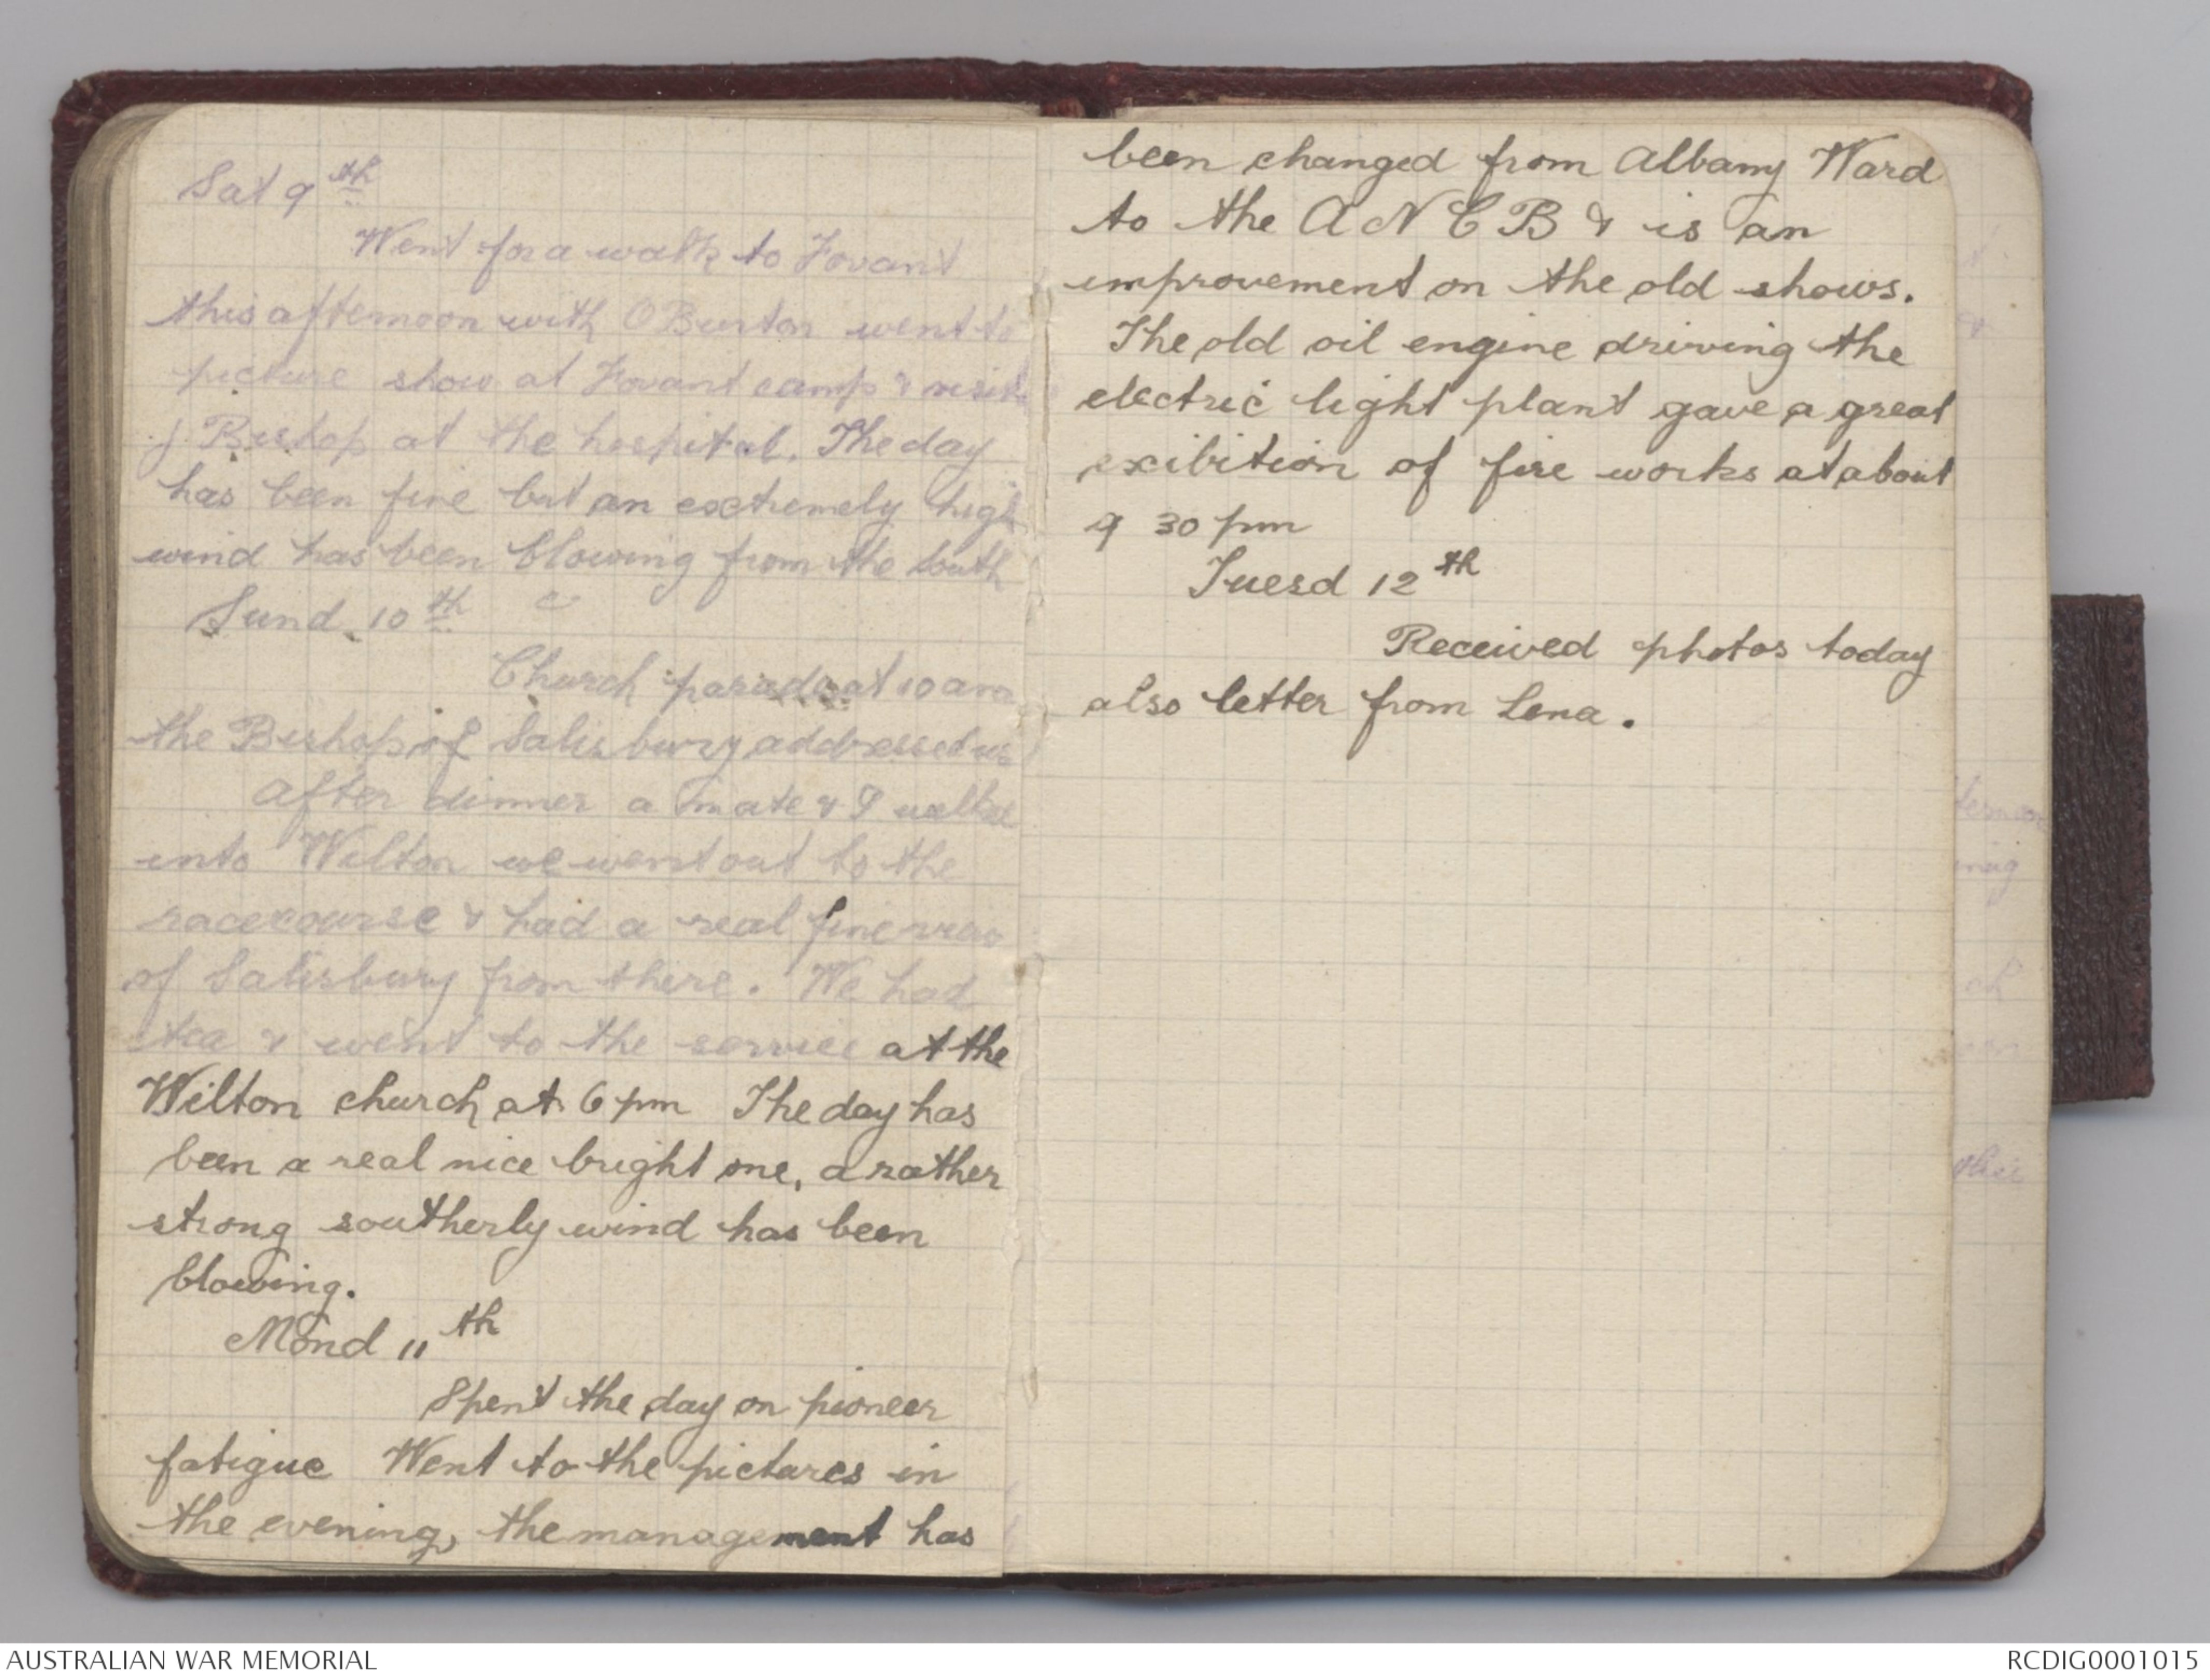 Sat 9th
Went for a walk to Fovant
this afternoon with O Burton went to
picture show at Fovant camp & visited
J Bishop at the hospital. The day
has been fine but an extremely high
wind has been blowing from the south
Sund 10th
Church parade at 10 am
the Bishop of Salisbury addressed us
After dinner a mate & I walked
into Wilton we went out to the
racecourse & had a real fine view
of Salisbury from there. We had
tea & went to the service at the
Wilton church at 6 pm The day has
been a real nice bright one, a rather
strong southerly wind has been
blowing.
Mond 11th
Spent the day on pioneer
fatigue Went to the pictures in
the evening, the management has
been changed from Albany Ward
to the A N C B & is an
improvement on the old shows.
The old oil engine driving the
electric light plant gave a great
exibition of fire works at about
9 30 pm
Tuesd 12th
Received photos today
also letter from Lena.
AUSTRALIAN WAR MEMORIAL
RCDIG0001015